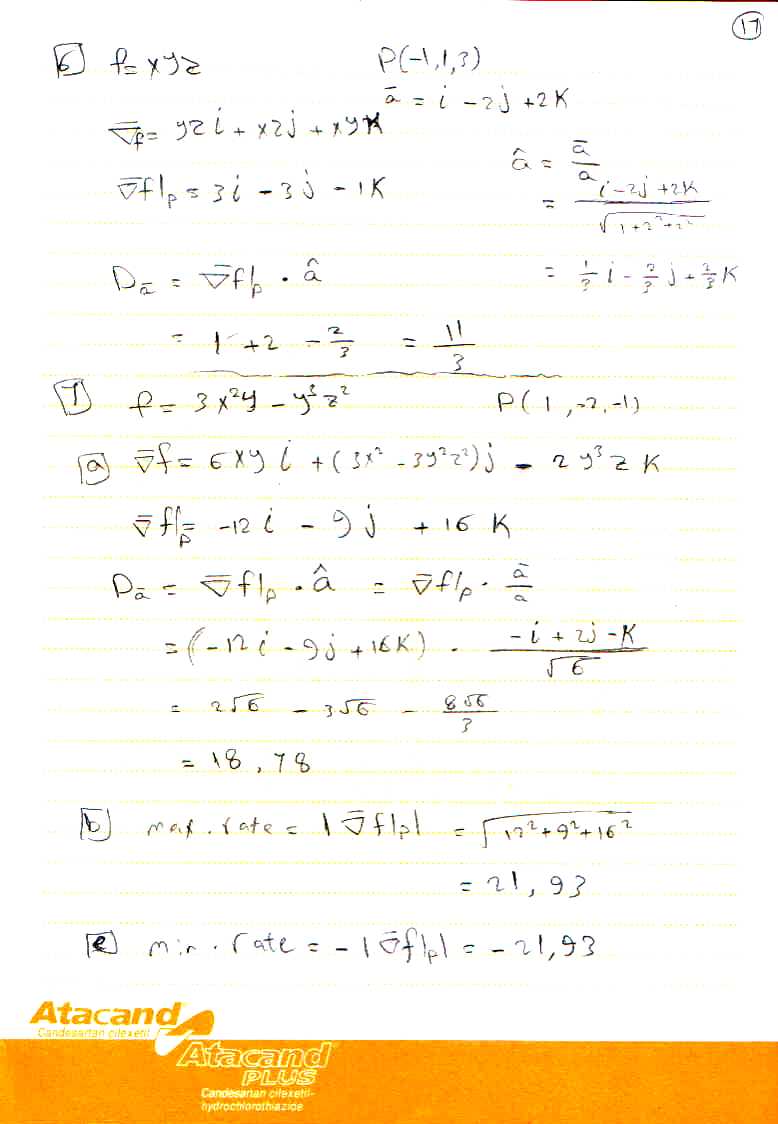 17
6 f = xyz P(-1,1,3)
ā = i - 2j + 2K
∇̄f = yz i + xz j + xy K
â = ā/a
∇̄f|p = 3i - 3j - 1K
= (i - 2j + 2K)/√(1+2²+2²)
Dā = ∇̄f|p . â = 1/3 i - 2/3 j + 2/3 K
= 1 + 2 - 2/3 = 11/3
7 f = 3x²y - y³z² P(1, -2, -1)
a ∇̄f = 6xy i + (3x² - 3y²z²)j - 2y³z K
∇̄f|p = -12 i - 9 j + 16 K
Dā = ∇̄f|p . â = ∇̄f|p . ā/a
= (-12 i - 9 j + 16K) . (-i + 2j - K)/√6
= 2√6 - 3√6 - 8√6/3
= 18,78
b max. rate = |∇̄f|p| = √(12²+9²+16²)
= 21,93
c min. rate = -|∇̄f|p| = -21,93
Atacand
Candesartan cilexetil
Atacand
PLUS
Candesartan cilexetil-
hydrochlorothiazide